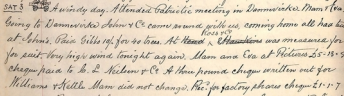 SAT 3 A windy day. Attended Patriotic meeting in Dannevirke. Mam & Eva
Going to Dannevirke John & Co came round with us, coming home all had tea
at John's. Paid Gibbs 10/- for 40 trees. At Ross & Co was measured for
for suit. Very high wind tonight again. Mam and Eva at Pictures £5-18-9
cheque paid to C. L. Neilsen & Co A three pound cheque written out for
Williams & Kettle Mam did not change. Rec. for factory shares cheque £1-1-7